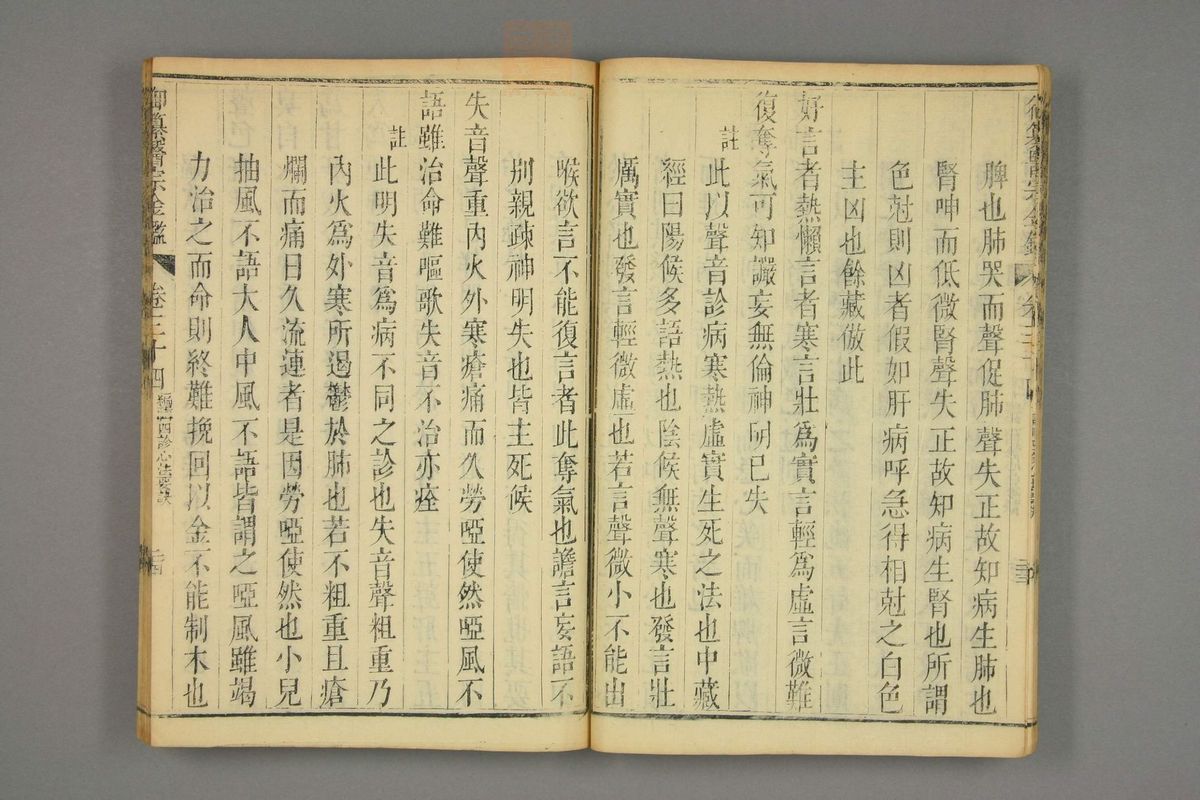 脾也肺哭而聲促肺聲失正故知病生肺也
腎呻而低微腎聲失正故知病生腎也所謂
色尅則凶者假如肝病呼急得相尅之白色
主凶也餘藏倣此
好言者熱懶言者寒言壯爲實言輕爲虛言微難
復奪氣可知讝妄無倫神明已失
註
此以聲音診病寒熱虛實生死之法也中藏
經曰陽候多語熱也陰候無聲寒也發言壯
厲實也發言輕微虛也若言聲微小不能出
喉欲言不能復言者此奪氣也譫言妄語不
别親疎神明失也皆主死候
失音聲重內火外寒瘡痛而久勞啞使然啞風不
語雖治命難嘔歌失音不治亦痊
註
此明失音爲病不同之診也失音聲粗重乃
內火爲外寒所遏鬱於肺也若不粗重且瘡
爛而痛日久流連者是因勞啞使然也小兒
抽風不語大人中風不語皆謂之啞風雖竭
力治之而命則終難挽回以金不能制木也
御纂醫宗金鑑
卷三十四
四診心法要訣